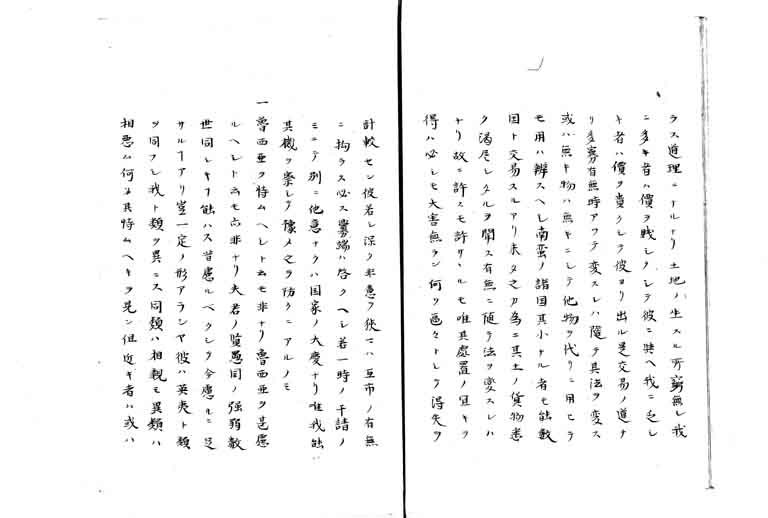 ラス道理ニナルナリ土地ノ生スル所窮無レ我
ニ多キ者ハ價ヲ賤シクシテ彼ニ與ヘ我ニ乏シ
キ者ハ價ヲ貴クシテ彼ヨリ出ル是交易ノ道ナ
リ多寡有無時アツテ変スレハ隨テ其法ヲ変ス
或ハ無キ物ハ無キニシテ他物ヲ代リニ用ヒテ
モ用ハ辨スヘシ南蛮ノ諸国其小ナル者モ能數
国ト交易スルアリ未タ之カ為ニ其土ノ貨物悉
ク渴尽シタルヲ聞ス有無ニ随テ法ヲ変スレハ
ナリ故ニ許スモ許サヽルモ唯其處置ノ宜キヲ
得ハ必シモ大害無ラン何ソ區々トシテ得失ヲ
計較セン彼若シ深ク禍意ヲ狹マハ互市ノ有無
ニ拘ラス必ス釁端ハ啓クヘシ若一時ノ干請ノ
ミニテ別ニ他意ナクハ国家ノ大慶ナリ唯我能
其機ヲ察シテ豫メ之ヲ防クニアルノミ
一魯西亜ヲ恃ムヘシト云モ非ナリ魯西亜ヲ甚慮
ルヘシト云モ亦非ナリ夫君ノ賢愚同ノ強弱數
世同シキフ能ハス昔慮ルヘクシテ今慮ルニ足
サルフアリ豈一定ノ形アランヤ彼ハ英夷ト類
ヲ同フシ我ト類ヲ異ニス同類ハ相親モ異類ハ
相悪ム何ソ其恃ムヘキヲ見ン但近キ者ハ或ハ